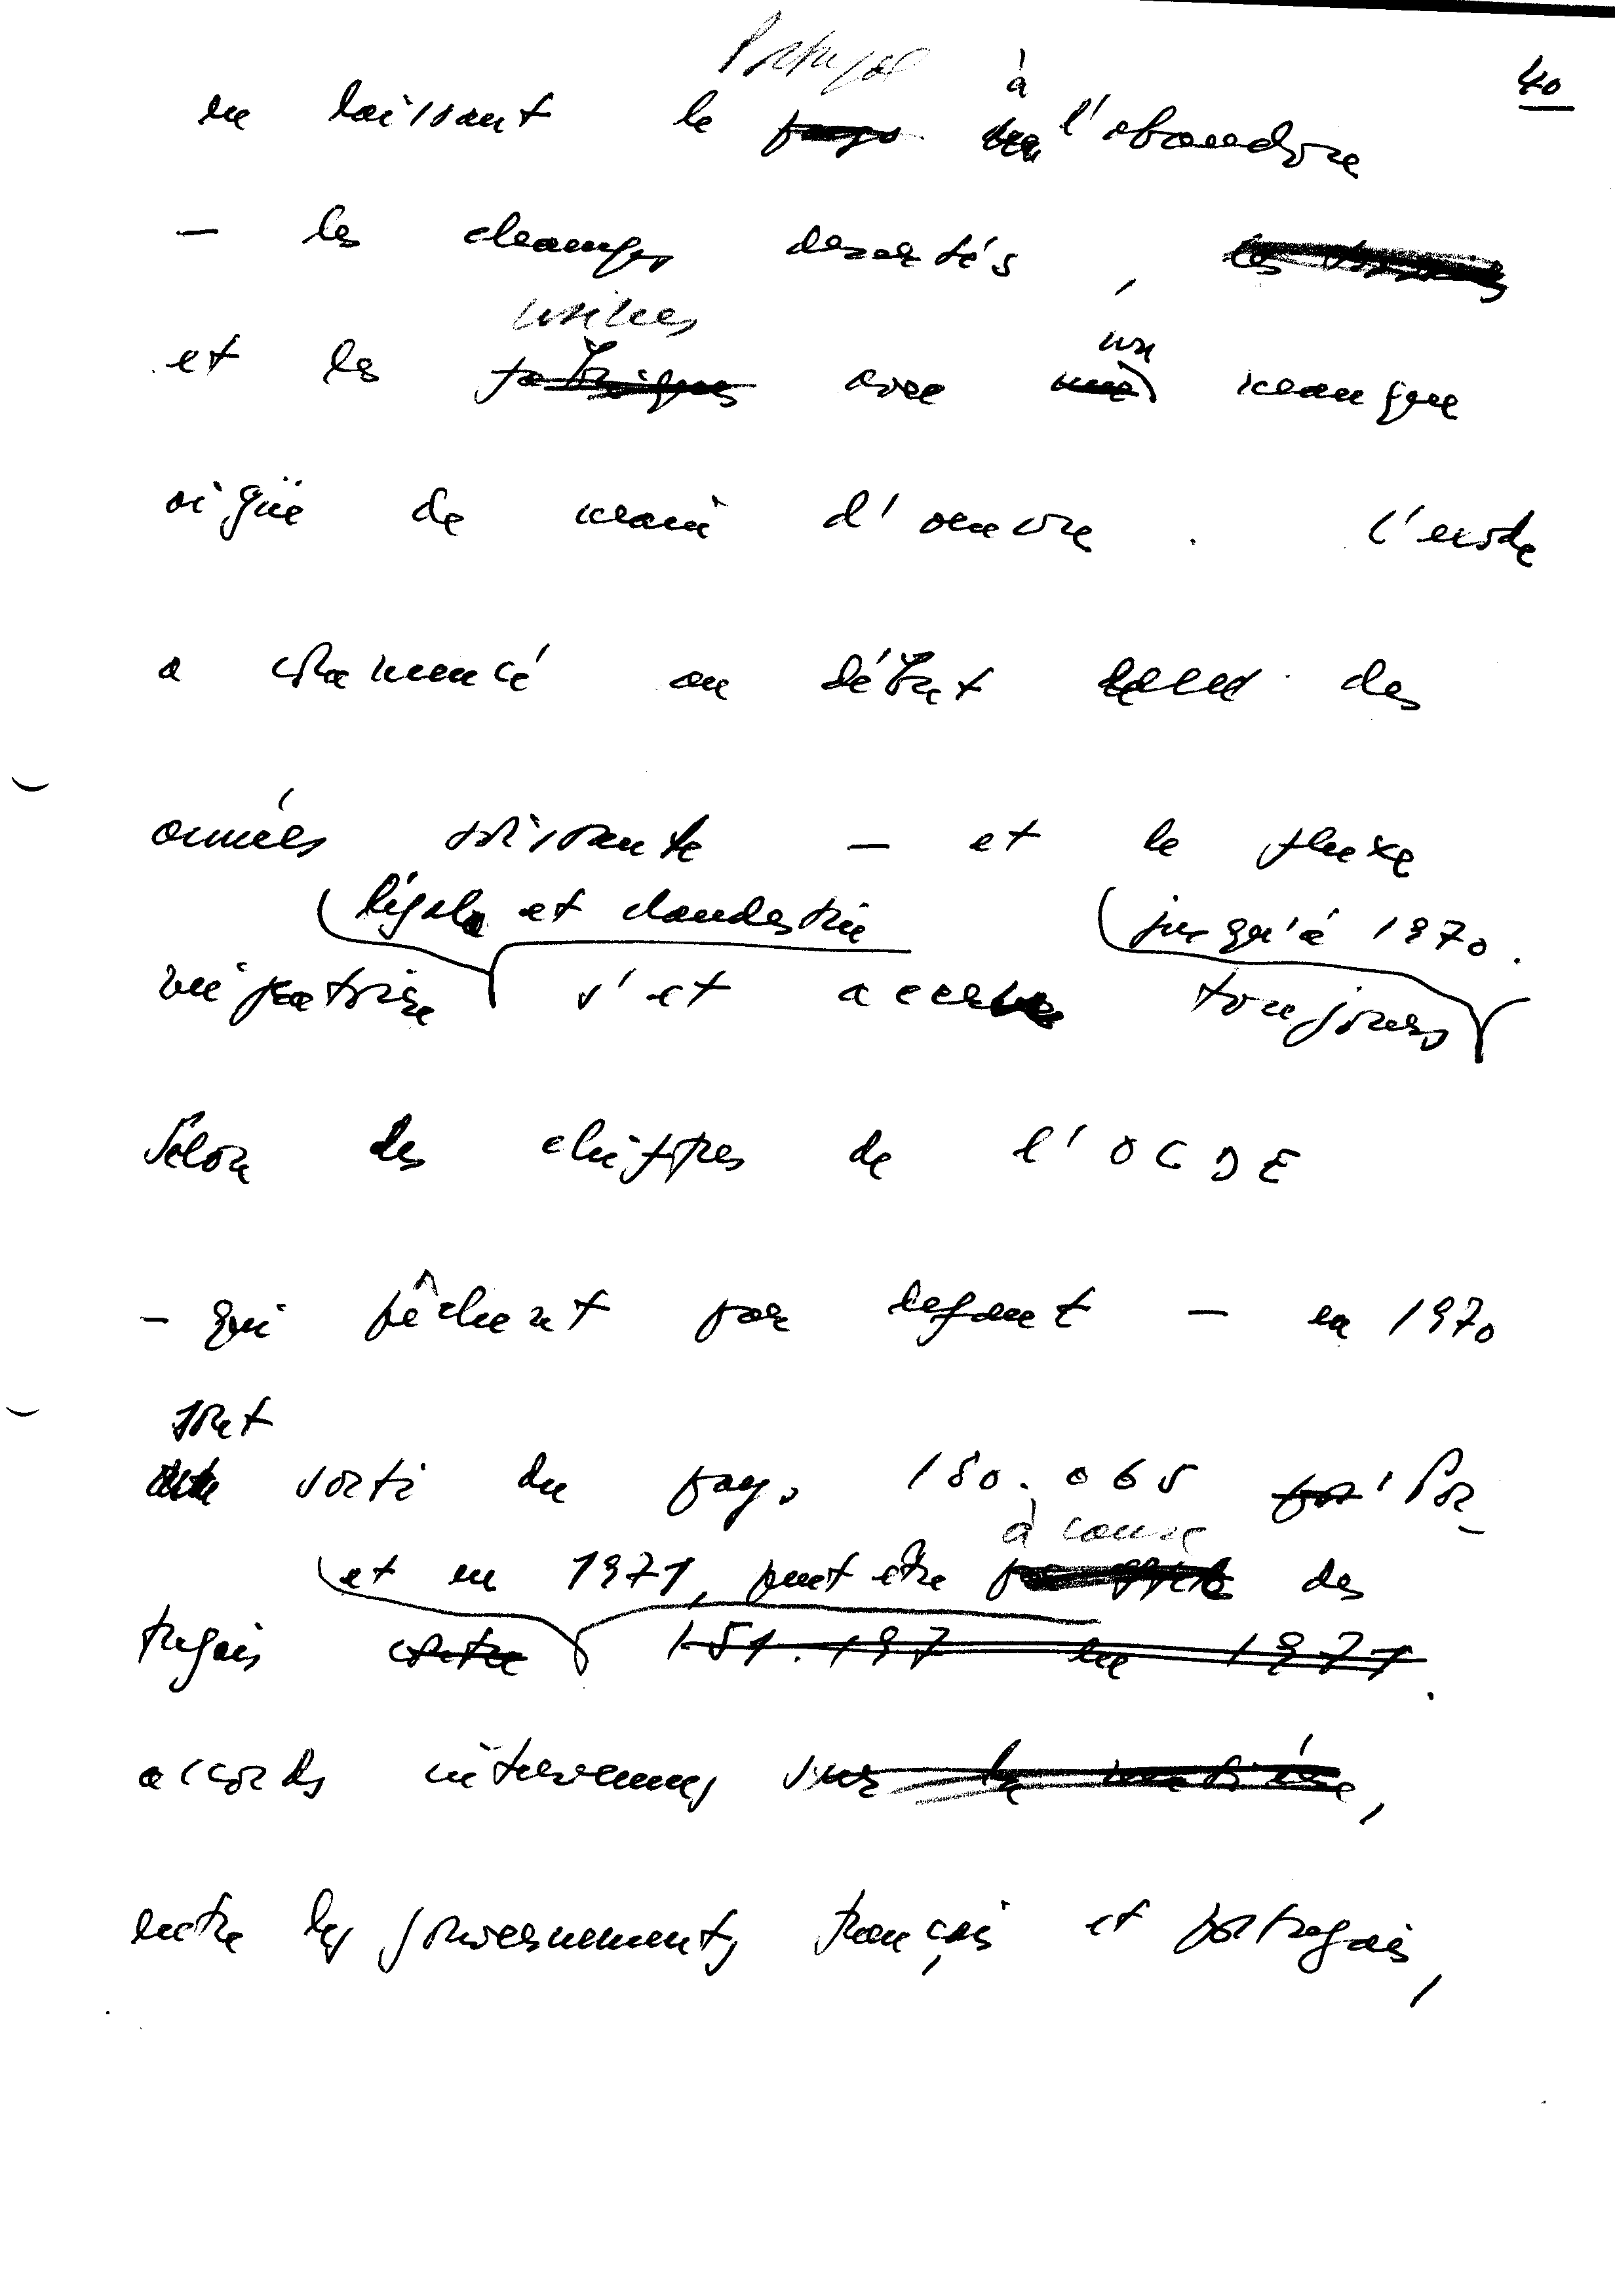 40
Portugal à
en laissant le pays l'abandon
– les champs desertés, les
usines un
et les fabriques avec une manque
aigüe de main d'oeuvre. L'exode
a commencé au début des
années soixante – et le fluxe
légale et clandestin jusqu'à 1970.
migratoire s'est accru toujours
Selon des chiffres de l'OCDE
– qui pêchent par defaut – en 1970
sont
sorti du pays 180.065 por Por-
à cause
et en 1971, peut être des
tugais contre 151.197 en 1971.
accords intervenus sur la matière,
entre les gouvernements français et portugais,